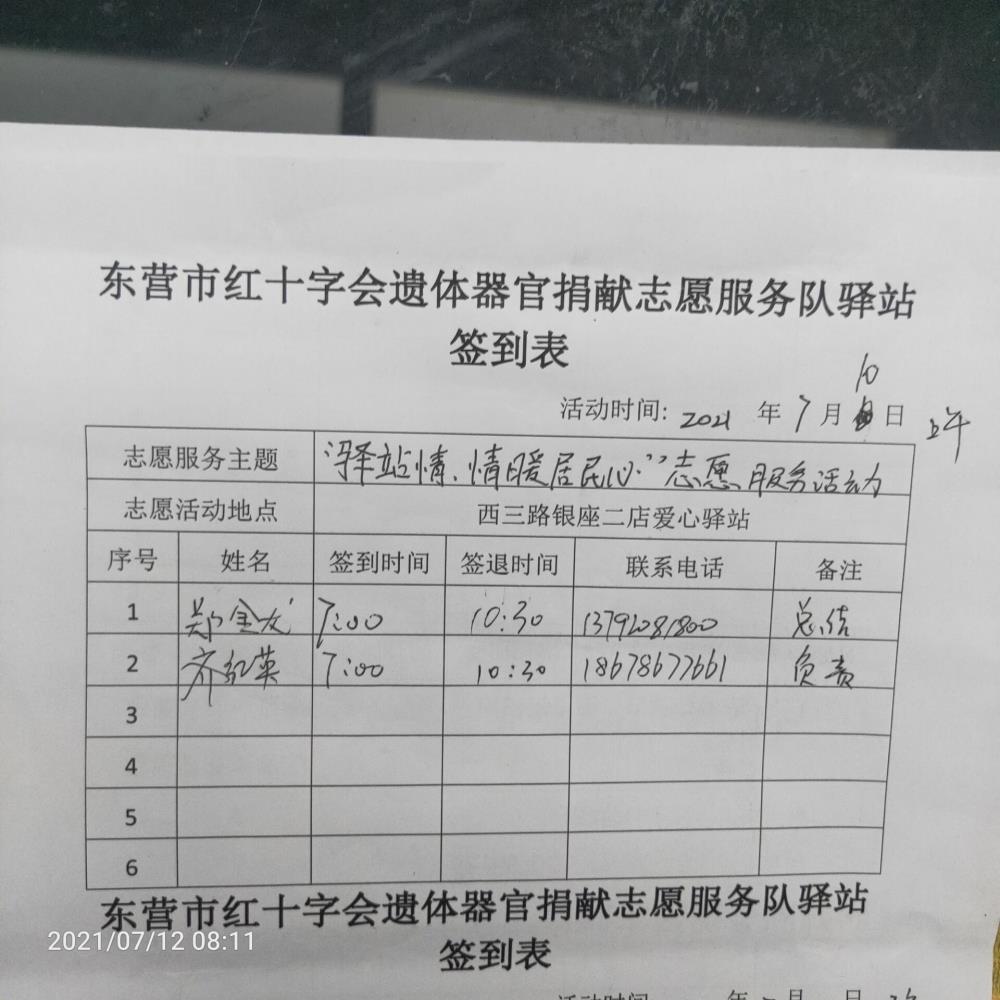 东营市红十字会遗体器官捐献志愿服务队驿站
签到表
活动时间: 2021 年 7 月 10 日 上午
志愿服务主题 “驿站情、情暖居民心”志愿服务活动
志愿活动地点 西三路银座二店爱心驿站
序号 姓名 签到时间 签退时间 联系电话 备注
1 郑金龙 7:00 10:30 13792081800 总结
2 齐红英 7:00 10:30 18678677661 负责
3
4
5
6
东营市红十字会遗体器官捐献志愿服务队驿站
签到表
2021/07/12 08:11
活动时间: 年 月 日